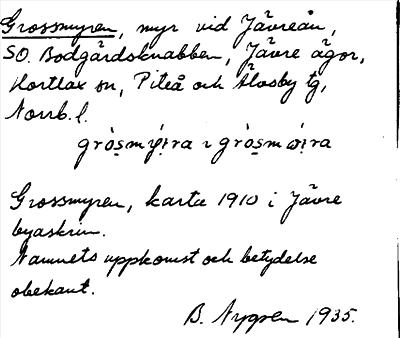 Grossmyren, myr vid Jävreån,
SO. Bodgårdsknabben, Jävre ägor,
Hortlax sn, Piteå och Älvsby tg,
Norrb. l.
Grossmyren, karta 1910 i Jävre
byaskrin.
Namnets uppkomst och betydelse
obekant.
B. Nygren 1935.